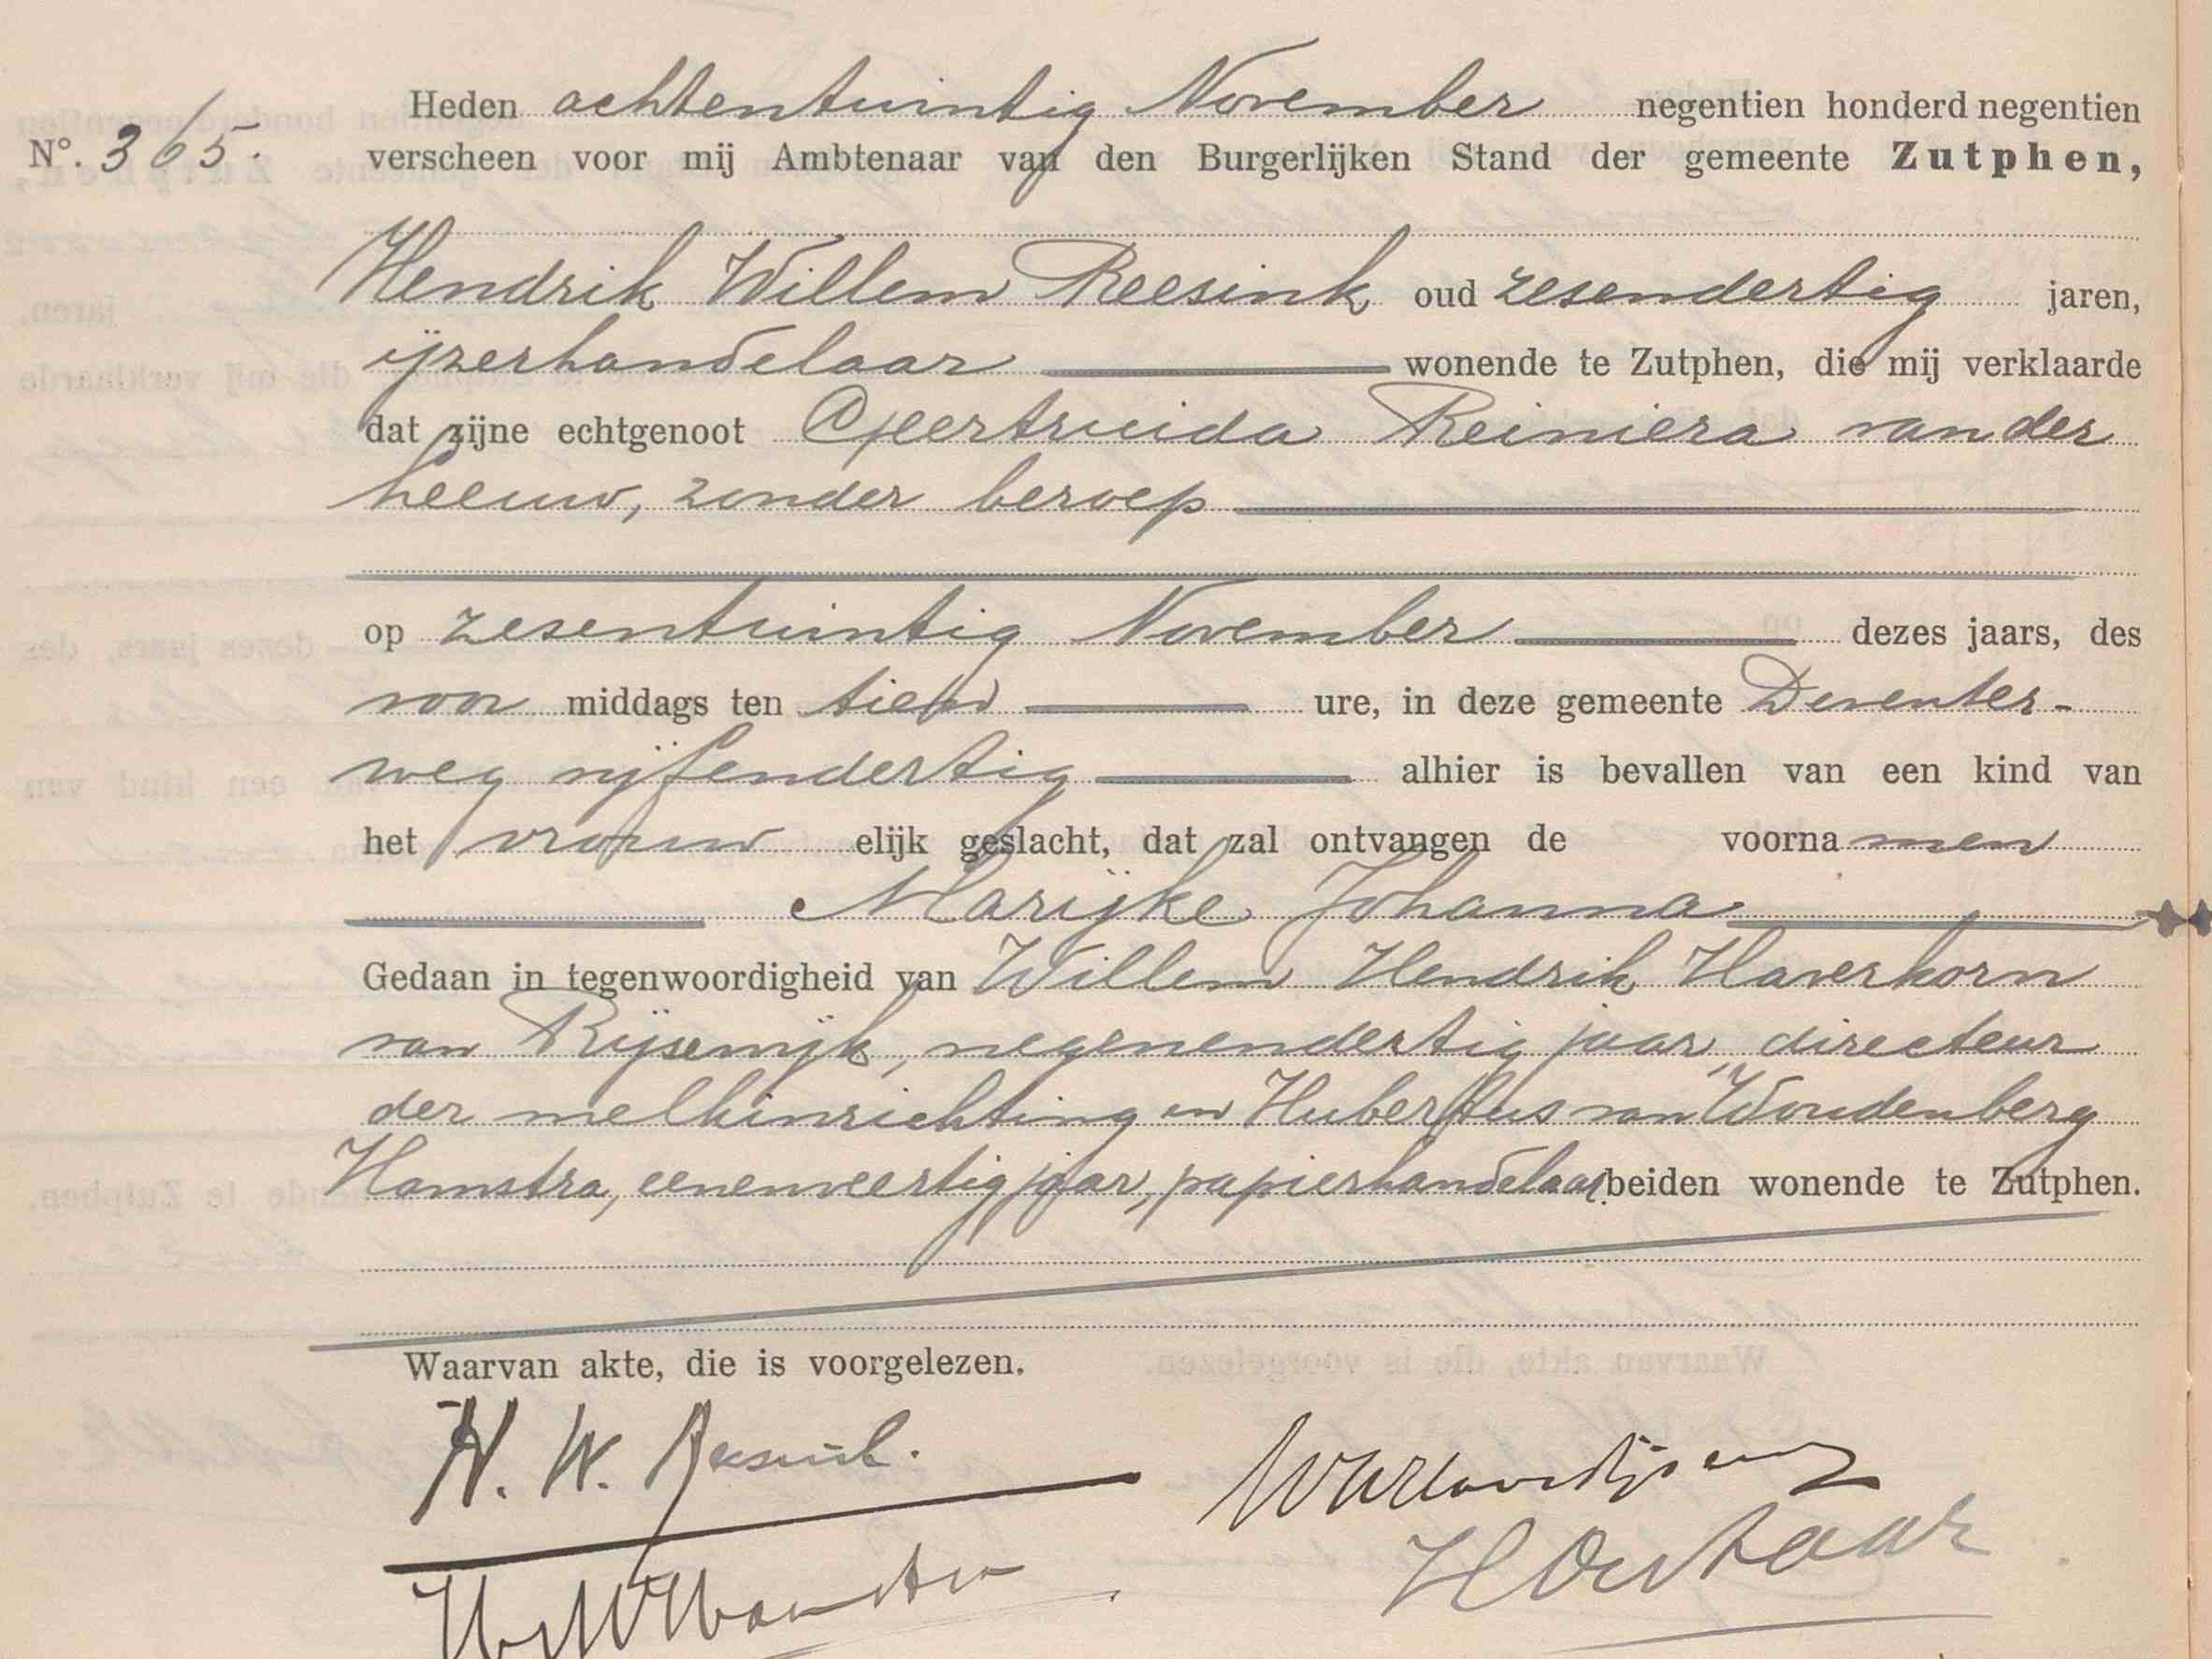 Heden achtentwintig November negentien honderd negentien
N°. 365. verscheen voor mij Ambtenaar van den Burgerlijken Stand der gemeente Zutphen,
Hendrik Willem Reesink oud zesendertig jaren,
ijzerhandelaar wonende te Zutphen, die mij verklaarde
dat zijne echtgenoot Geertruida Reiniera van der
Leeuw, zonder beroep
op zesentwintig November dezes jaars, des
voor middags ten tien ure, in deze gemeente Deventer-
weg vijfendertig alhier is bevallen van een kind van
het vrouw elijk geslacht, dat zal ontvangen de voorna men
Marijke Johanna
Gedaan in tegenwoordigheid van Willem Hendrik Haverkorn
van Rijsewijk, negenendertig jaar, directeur
der melkinrichting en Hubertus van Woudenberg
Hamstra, eenenveertig jaar, papierhandelaar beiden wonende te Zutphen.
Waarvan akte, die is voorgelezen.
H. W. Reesink.